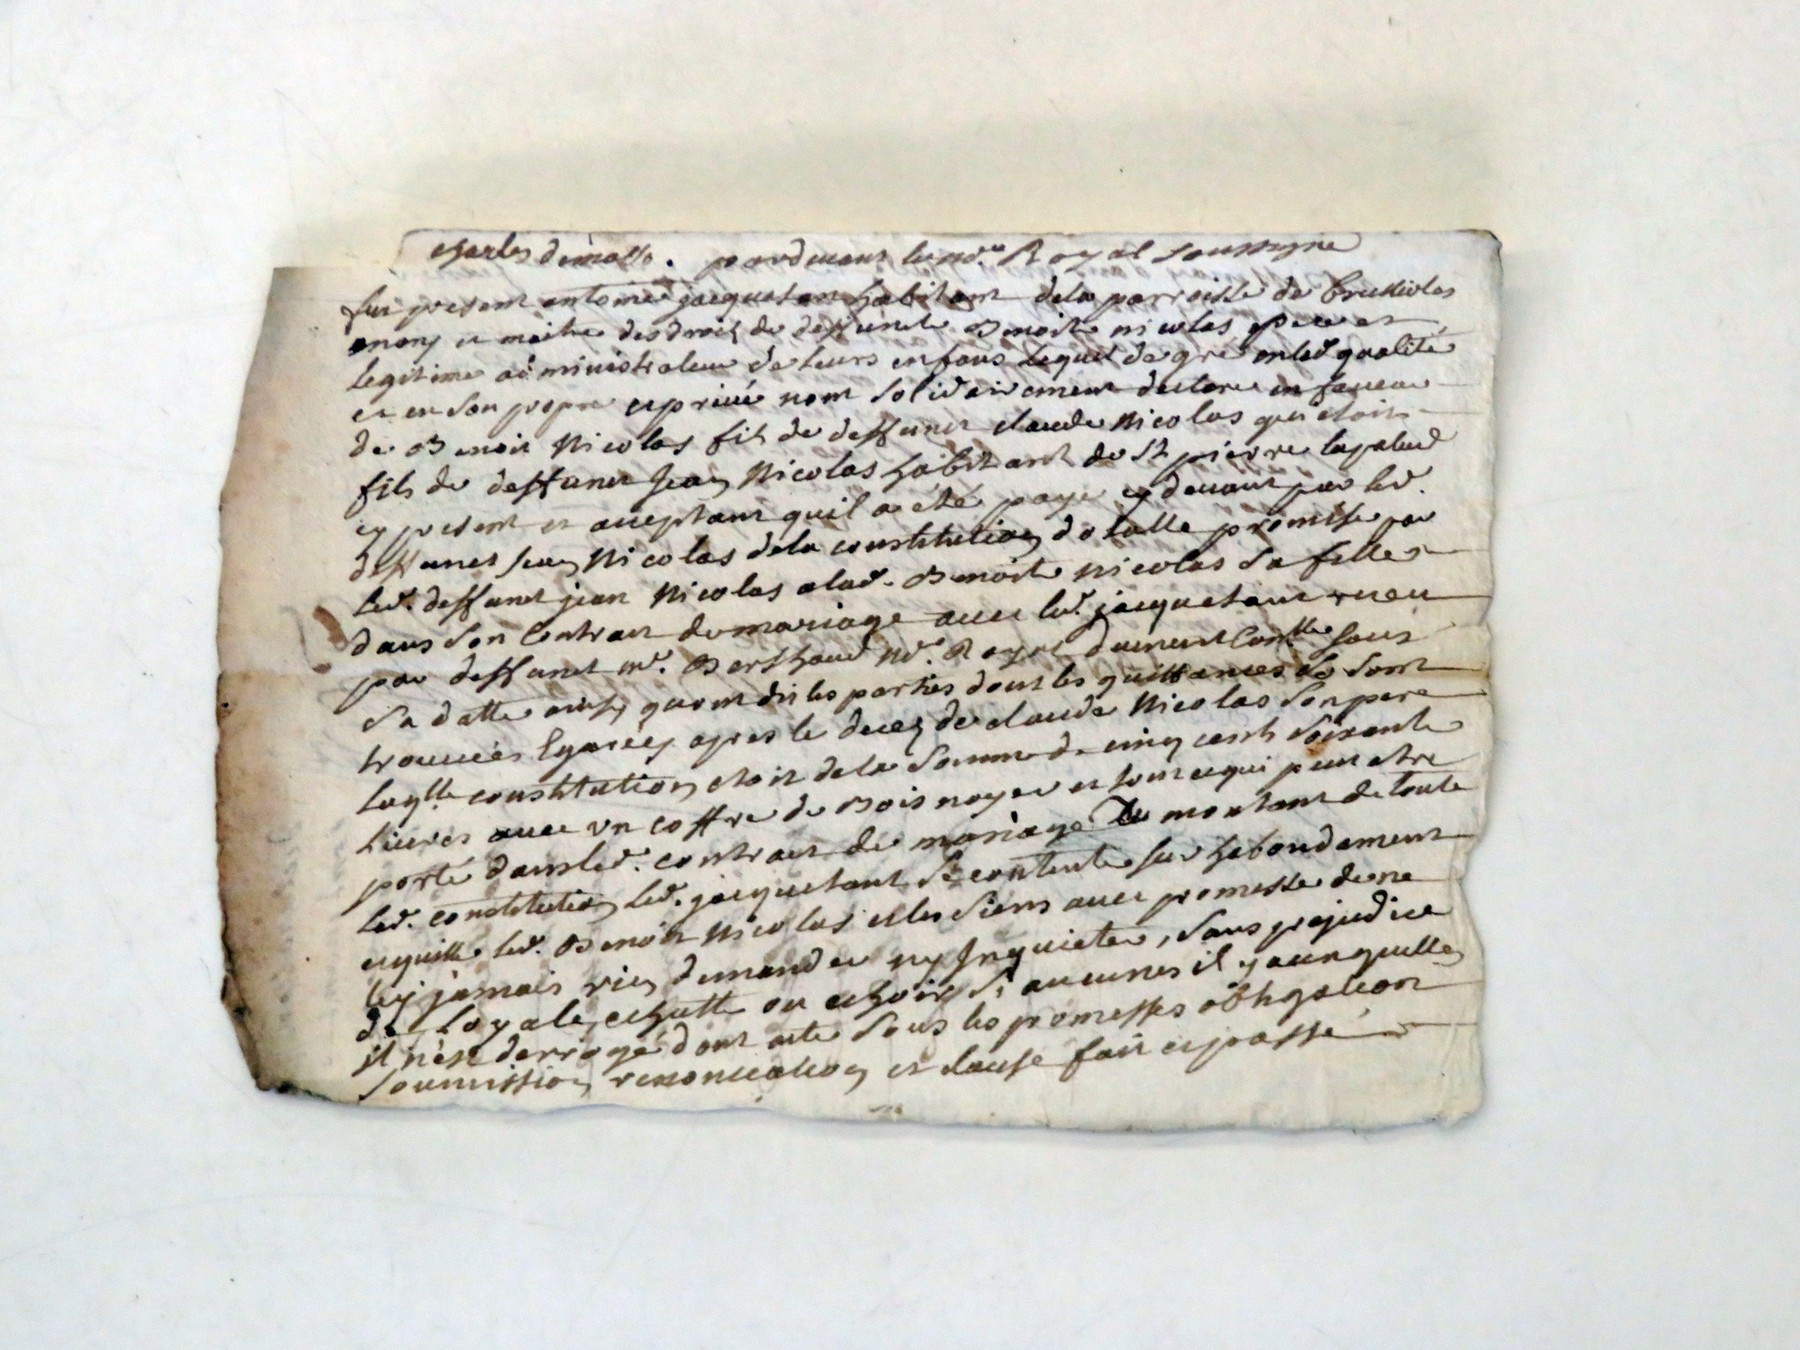 charles demotte. pardevant le no.re Royal soussigne
fut present antoine jacquetant habitant de la parroisse de brussioles
en nom et maitre des droits de deffunte Benoite nicolas et pere et
legitime administrateur de leurs enfans lequel de gré en lad. qualité
et en son propre et privé nom solidairement declare en faveur
de Benoit Nicolas fils de deffunt claude Nicolas qui etoit
fils de deffunt Jean Nicolas habitant de St pierre lapalud
cy present et acceptant quil a eté payé cy devant par led.
deffunct Jean Nicolas de la constitution dotalle promise par
led. deffunt jean Nicolas a lad. Benoite Nicolas sa fille
dans son Contrat de mariage avec led. jacquetant receu
par deffunt me. Berthaud no.re Royal duement Con.lle sous
sa datte ainsy quont dit les parties dont les quittances se sont
trouvées Egarées apres le decez de claude Nicolas son pere
laq.lle constitution etoit de la somme de cinq cents soixante
livres avec un coffre de Bois noyer et tout ce qui peut etre
porté dans led. contrat de mariage Du montant de toute
led. constitution led. jacquetant se contente sur habondement
et quitte led. Benoit Nicolas et les siens avec promesse de ne
luy jamais rien demander ny Inquieter, sans prejudice
de Loyale echutte ou echoir si aucunes il y a aux quelles
il n'est derrogé dont acte sous les promesses obligation
soumission renonciation et clause fait et passé